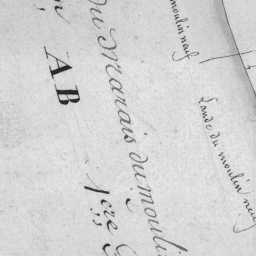 moulin neuf
Du Marais du moulin
AB
Lande du moulin neuf
1ere